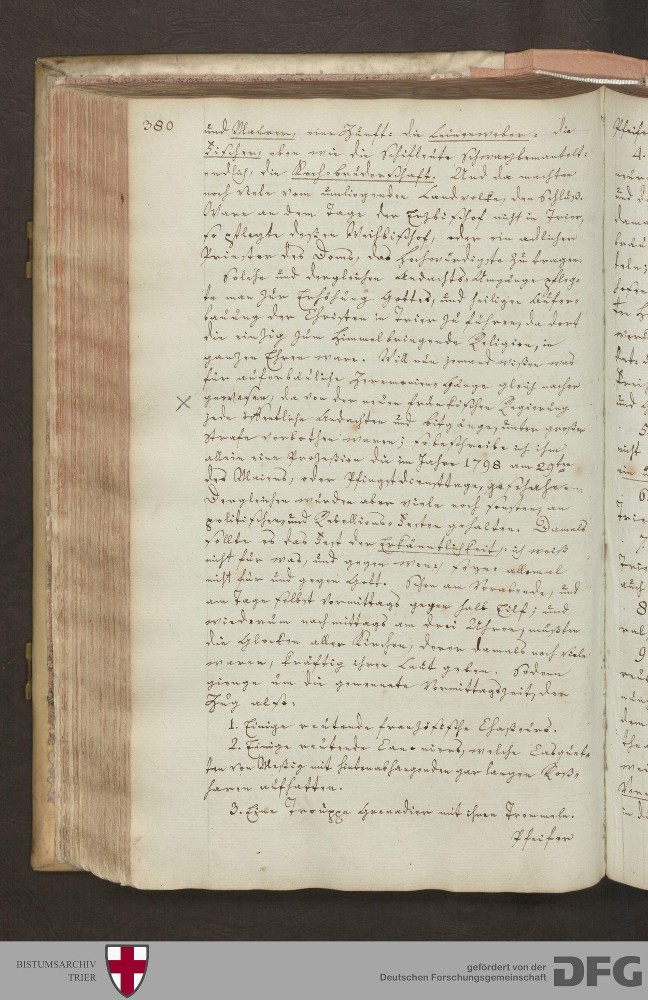 380
und Maurer, eine Zunft: die Leinenweber: die
Fischer, eben wie die Schifleute Schwarzbemantelt:
endlich, die Kochsbruderschaft. Und da machten
noch Viele vom umliegenden Landvolke, den Schluß.
Ware an dem Tage der Erzbischof nicht in Trier,
so pflegte dessen Weihbischof, oder ein adlicher
Priester des Doms, das Hochwürdigste zu tragen.
Solche und dergleichen Andachts-Umgänge pfleg-
te man zur Erhöhung Gottes, und heiligen Aufer-
bauung der Christen in Trier zu führen, da dort
die einzig zum Himmel bringende Religion, in
ganzen Ehren ware. Will nun jemand wissen was
für auferbäuliche Zeremonien gänge gleich nacher
gewesen, da von der neuen fränkischen Regierung
jede öffentliche Andachten und Bitgänge, unter großer
Strafe verbothen waren; so beschreibe ich ihm
allein eine Prozession die im Jahre 1798 am 29ten
des Maiens, oder Pfingstdiensttage, geschahe.
Dergleichen wurden aber viele noch sonsten, an
politischen und Rebellions-Festen gehalten. Damals
sollte es das Fest der Erkänntlichkeit, ich weiß
nicht für was, und gegen wen, seyn: allemal
nicht für und gegen Gott. Schon am Vorabende, und
am Tage selbst Vormittags gegen halb Eilf; und
wiederum nachmittags am drei Uhren, mußten
die Glocken aller Kirchen, derer damals noch viele
waren, kräftig ihren Laut geben. Sodann
gienge um die genennete Vormittagszeit, der
Zug also:
1. Einige reutende französische Chasseurs.
2. Einige reutende Canoniers, welche Casquet-
ten von Messing mit hintenabhangenden gar langen Roß-
haren aufhatten.
3. Eine Trouppe Grenadier mit ihren Trommeln.
Pfeifer
BISTUMSARCHIV
TRIER
gefördert von der
Deutschen Forschungsgemeinschaft
DFG